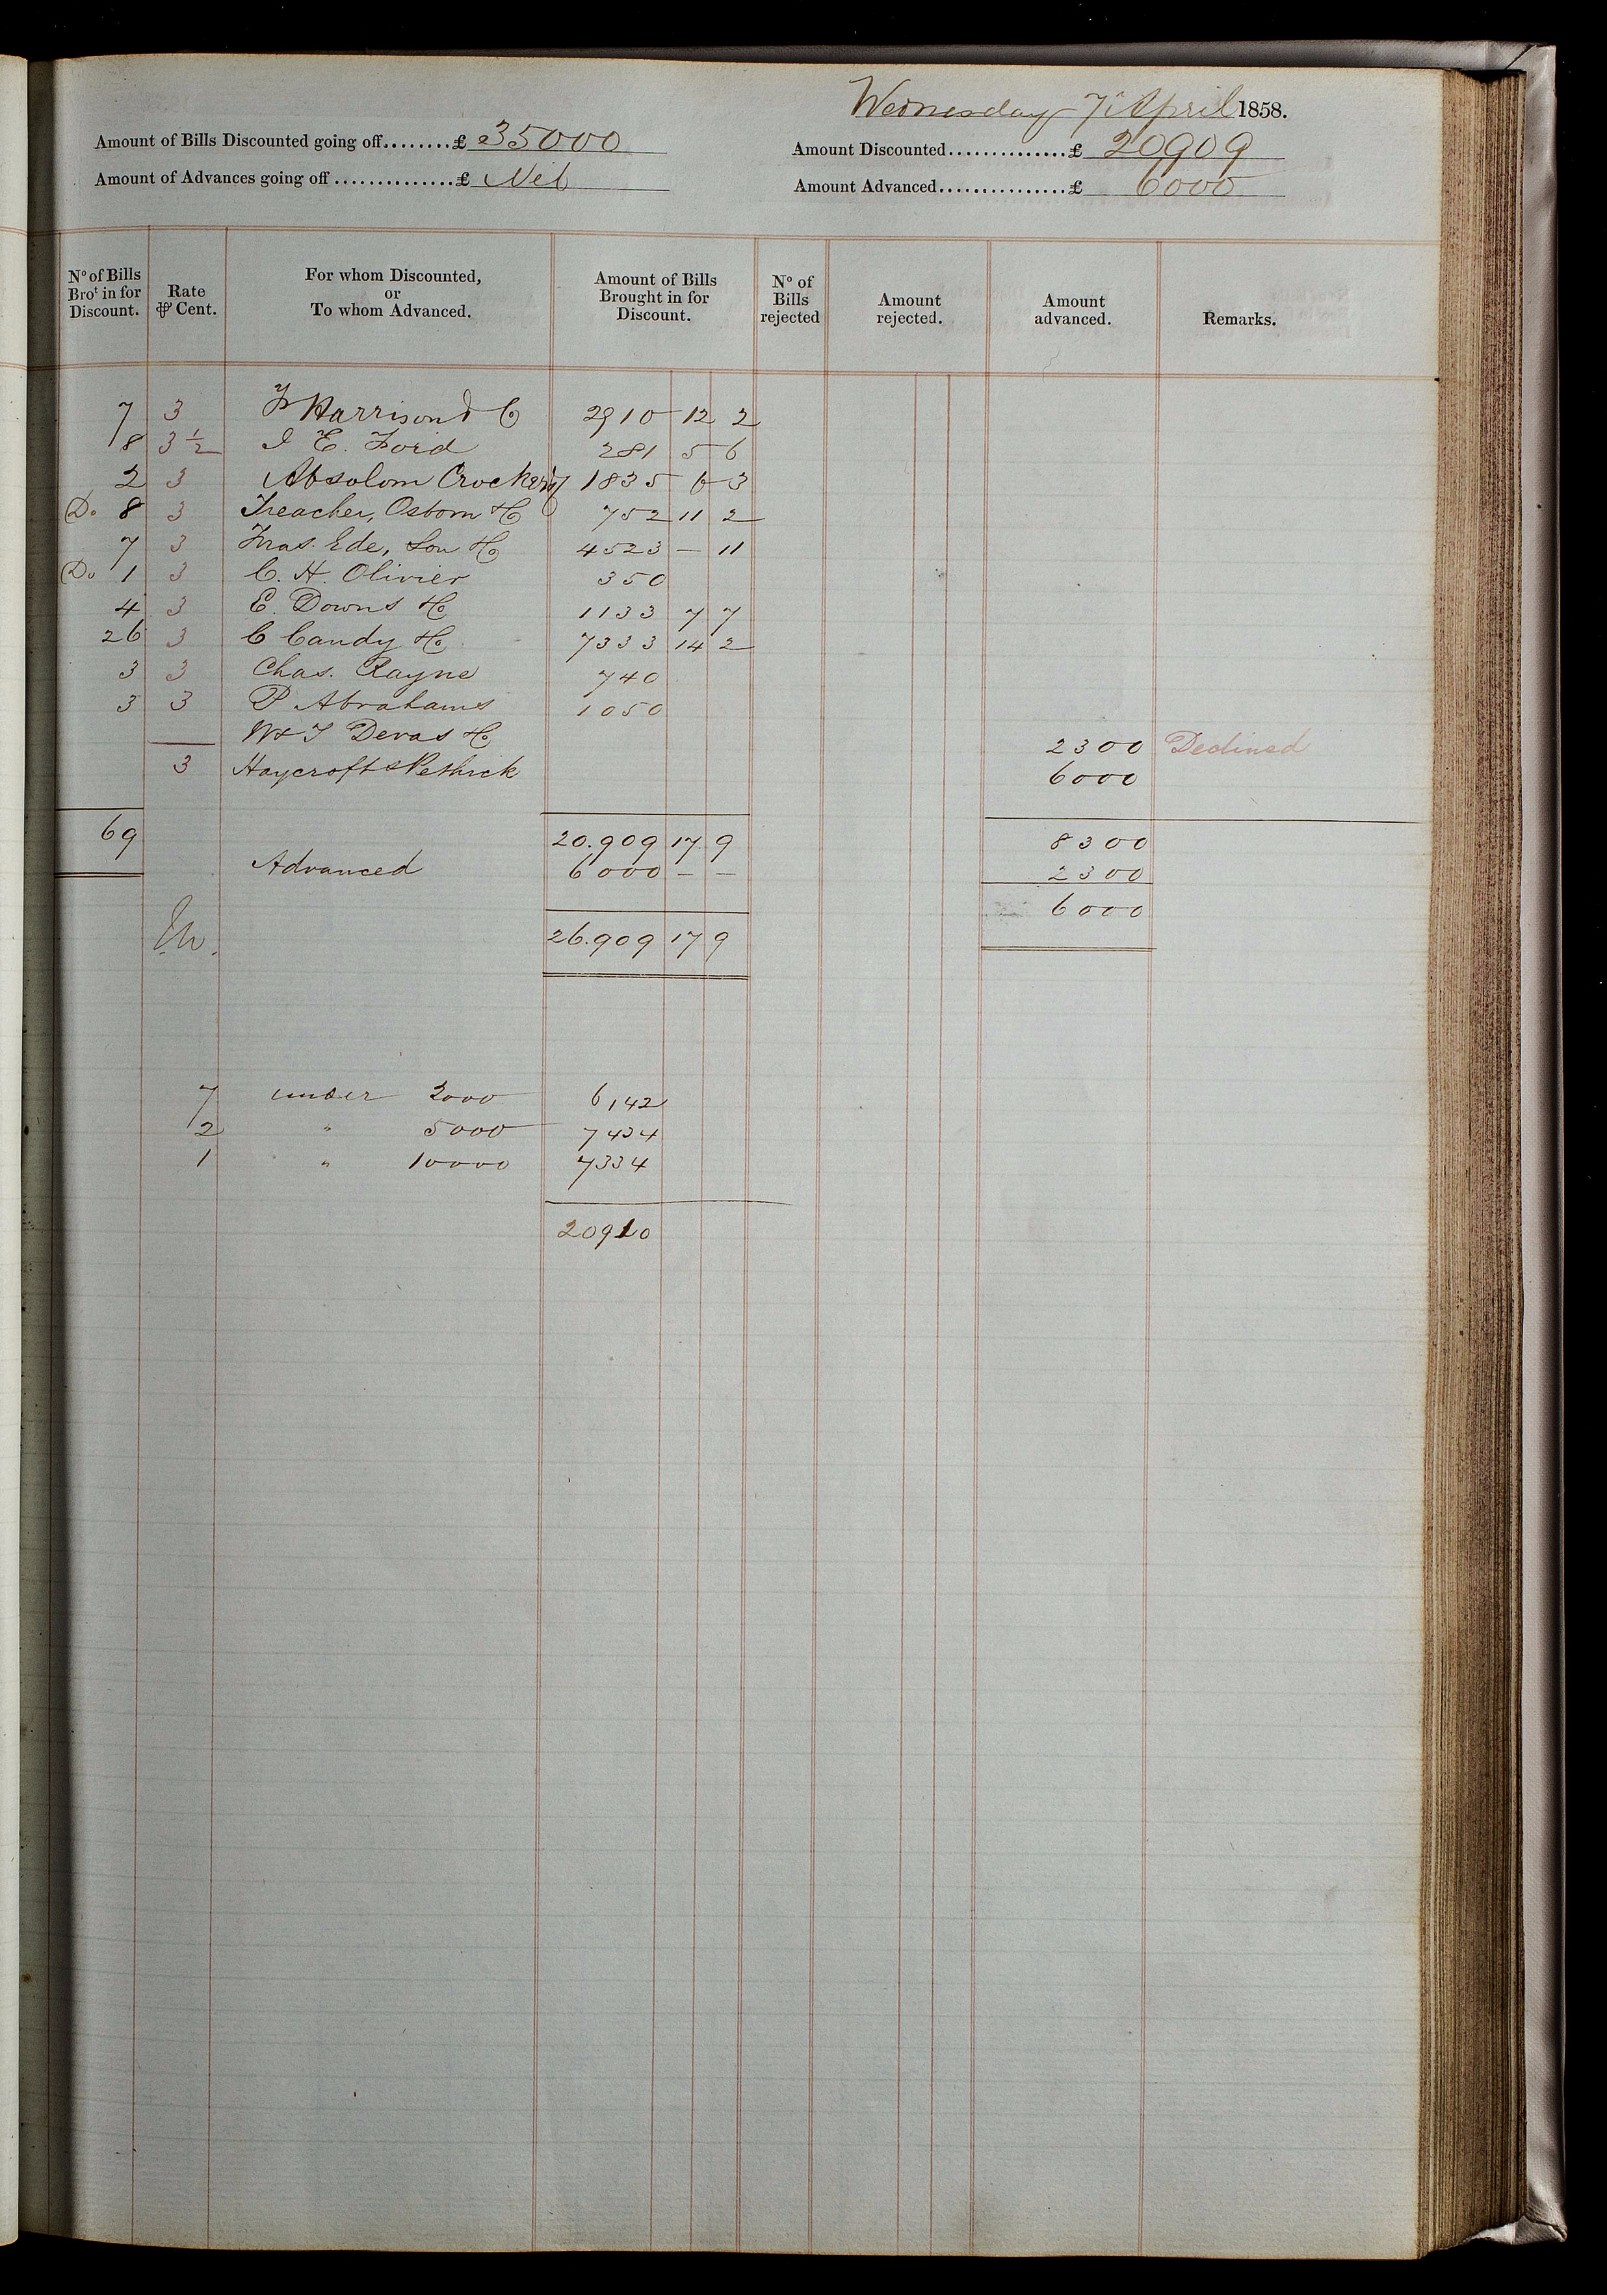 Wednesday 7th April 1858.
Amount of Bills Discounted going off........£ 35000
Amount Discounted..............£ 20909
Amount of Advances going off..............£ Nil
Amount Advanced...............£ 6000
No of Bills Brot in for Discount. Rate ⅌ Cent. For whom Discounted, or To whom Advanced. Amount of Bills Brought in for Discount. No of Bills rejected Amount rejected. Amount advanced. Remarks.
7 3 Harrison & Co 2910 12 2
8 3½ J E. Ford 281 5 6
2 3 Absolom Crockery 1835 6 3
Do 8 3 Treacher, Osborn & Co 752 11 2
7 3 Fras. Ede, Son & Co 4523 — 11
Do 1 3 C. H. Olivier 350
4 3 E. Downs & Co 1133 7 7
26 3 C Candy & Co 7333 14 2
3 3 Chas. Rayne 740
3 3 P Abrahams 1050
W & T Devas & Co 2300 Declined
3 Haycroft & Pethick 6000
69 20.909 17 9 8300
Advanced 6000 — — 2300
6000
26.909 17 9
7 under 2000 6142
2 " 5000 7434
1 " 10000 7334
20910